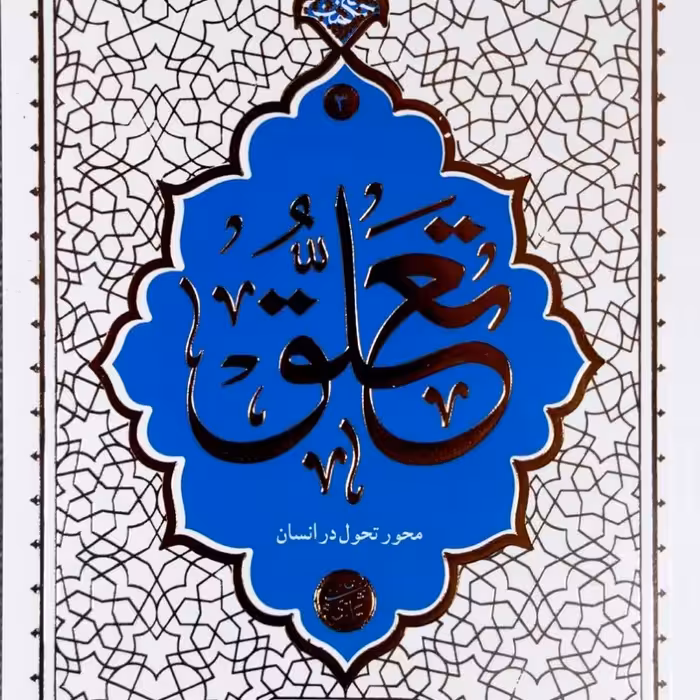 ۳
تَعَلُّق
محور تحول در انسان